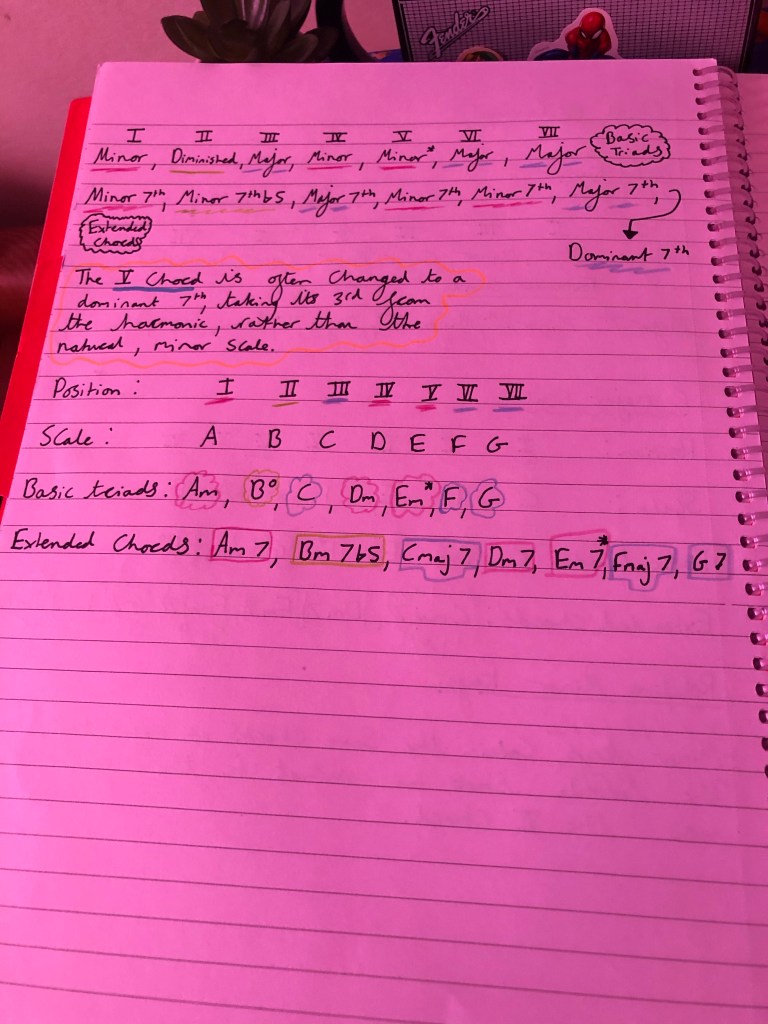 Fender
I II III IV V VI VII
Minor, Diminished, Major, Minor, Minor*, Major, Major
Basic Triads
Minor 7th, Minor 7th b5, Major 7th, Minor 7th, Minor 7th, Major 7th,
Extended Chords
Dominant 7th
The V Chord is often changed to a
dominant 7th, taking its 3rd from
the harmonic, rather than the
natural, minor scale.
Position: I II III IV V VI VII
Scale: A B C D E F G
Basic triads: Am, B°, C, Dm, Em*, F, G
Extended Chords: Am7, Bm7b5, Cmaj7, Dm7, Em7*, Fmaj7, G7